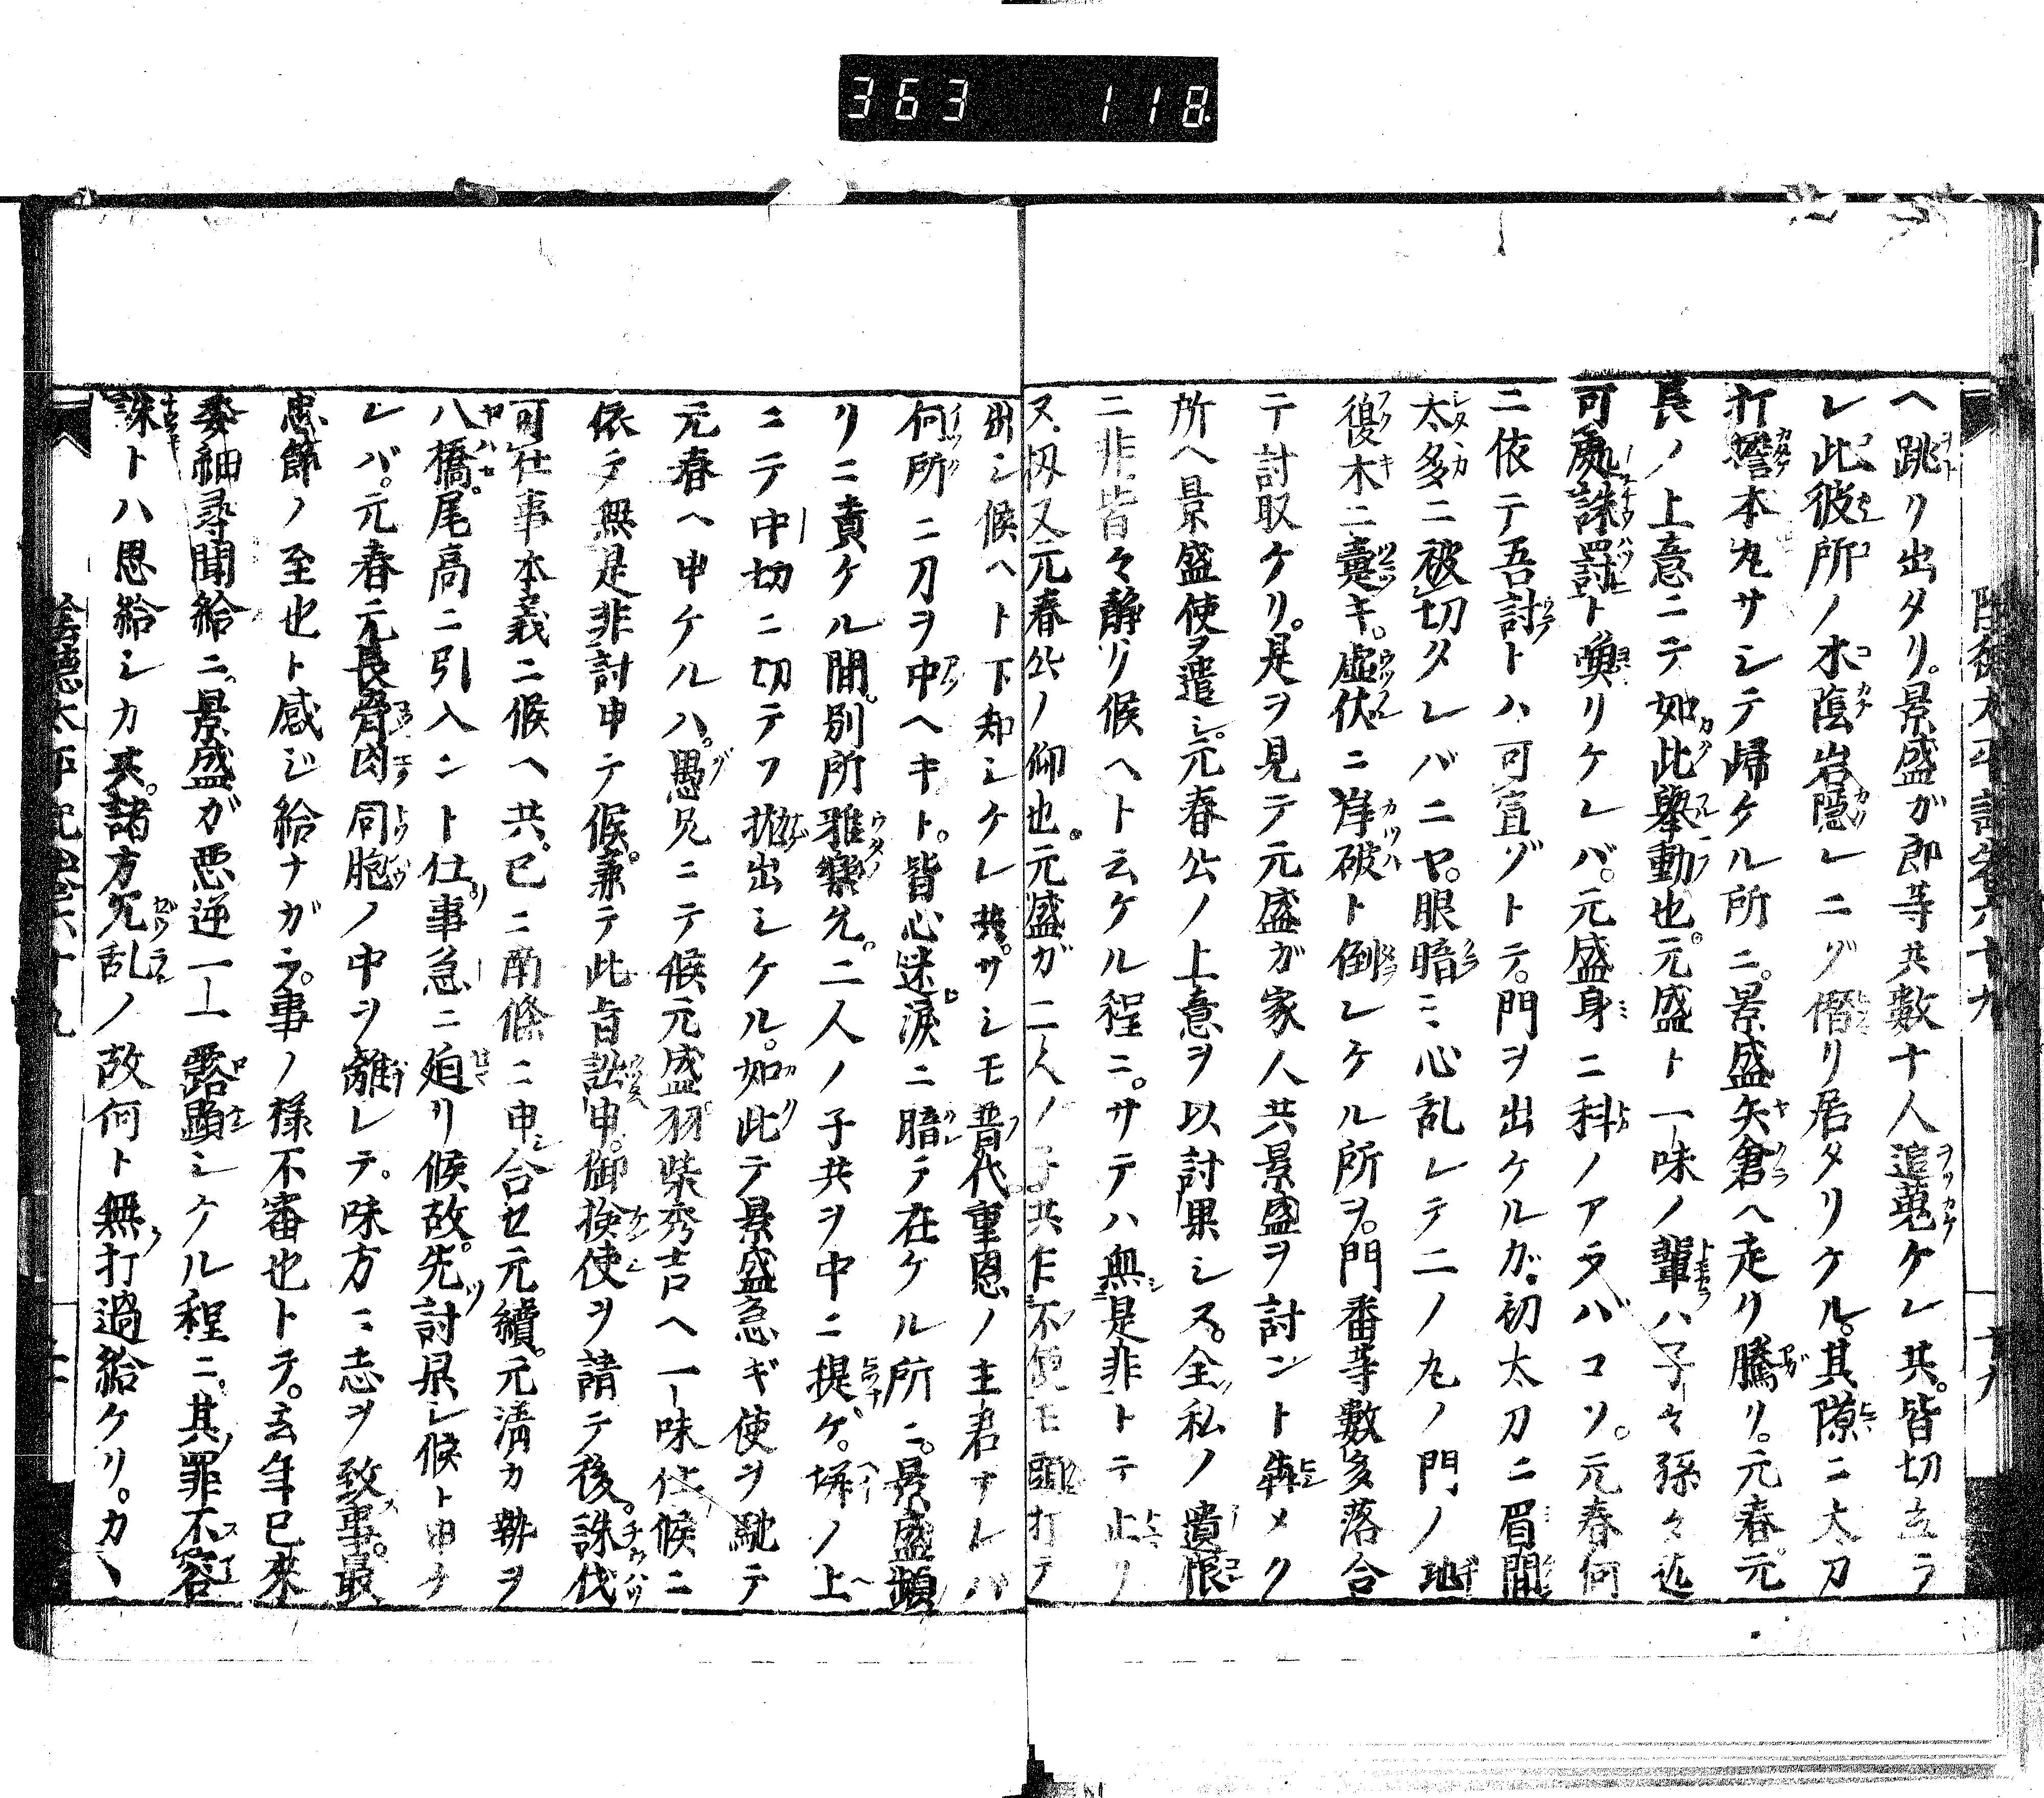 363 118
ヘ跳リ出タリ。景盛ガ郎等共數十人追蒐ケレ共。皆切立ラ
レ此彼所ノ木蔭岩隱レニゾ僭リ居タリケル。其隙ニ太刀
打擔本丸サシテ歸ケル所ニ。景盛矢倉ヘ走リ騰リ。元春元
長ノ上意ニテ如此擧動也。元盛ト一味ノ輩ハ子々孫々迄
可處誅罸ト喚リケレバ。元盛身ニ科ノアラバコソ。元春何
ニ依テ吾討トハ可宣ゾトテ。門ヲ出ケルガ。初太刀ニ眉間
太多ニ被切タレバニヤ。眼暗ミ心乱レテ二ノ丸ノ門ノ地
復木ニ躓キ。虛伏ニ岸破ト倒レケル所ヲ。門番等數多落合
テ討取ケリ。是ヲ見テ元盛ガ家人共景盛ヲ討ント犇メク
所ヘ景盛使ヲ遣シ。元春公ノ上意ヲ以討果シヌ。全私ノ遺恨
ニ非。皆々靜リ候ヘト云ケル程ニ。サテハ無是非トテ止リ
ヌ。扨又元春公ノ仰也。元盛ガ二人ノ子共乍不便モ頭打テ
出シ候ヘト下知シケレ共。サシモ普代重恩ノ主君ナレバ
何所ニ刀ヲ中ヘキト。皆心迷淚ニ暗テ在ケル所ニ。景盛頻
リニ責ケル間。別所雅樂允。二人ノ子共ヲ中ニ提ゲ。塀ノ上
ニテ中切ニ切テフ抛出シケル。如此テ景盛急ギ使ヲ馳テ
元春ヘ申ケルハ。愚兄ニテ候元盛。羽柴秀吉ヘ一味仕候ニ
依テ無是非討申テ候。兼テ此旨訟申。御撿使ヲ請テ後。誅伐
可仕事本義ニ候ヘ共。已ニ南條ニ申合セ元續。元淸カ勢ヲ
八橋。尾高ニ引入ント仕事急ニ廹リ候故。先討果シ候ト申ケ
レバ。元春元長骨肉同胞ノ中ヲ離レテ。味方ニ志ヲ致事。最
忠節ノ至也ト感ジ給ナガラ。事ノ樣不審也トテ。去年已來
委細尋聞給ニ。景盛ガ惡逆一々露顯シケル程ニ。其罪不容
誅トハ思給シカ共。諸方冗乱ノ故何ト無打過給ケリ。カヽ